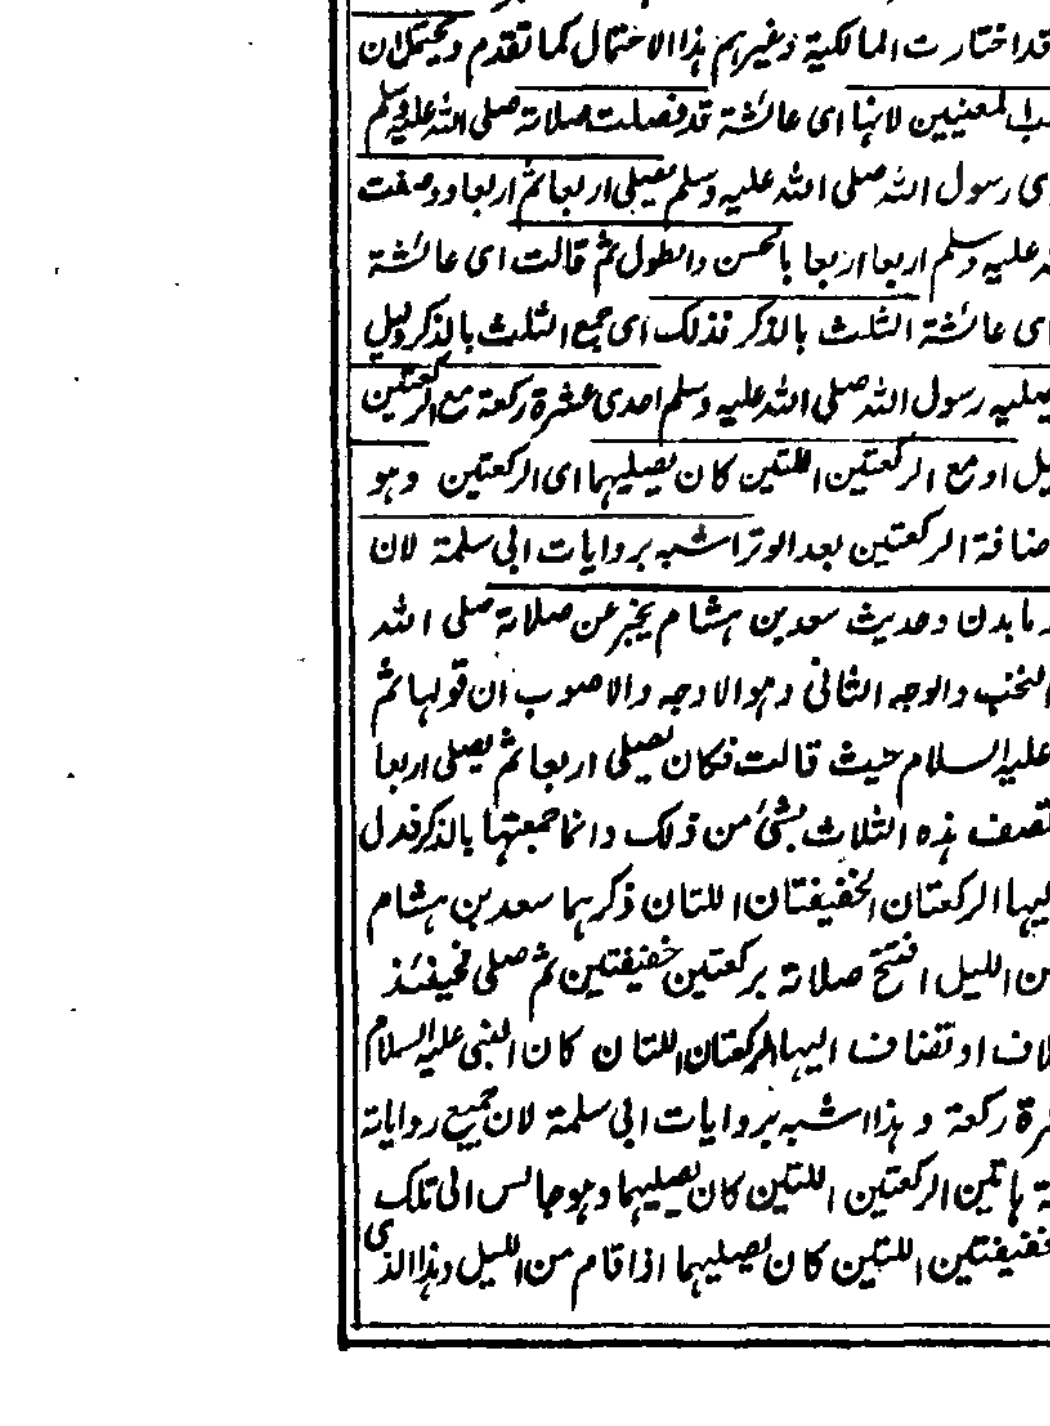 قد اختارت المالكية وغيرهم هذا الاحتمال كما تقدم ويحتمل ان
المعنيين لانها اى عائشة قد فصلت صلاته صلى الله عليه وسلم
رسول الله صلى الله عليه وسلم يصلى اربعا ثم اربعا ووصفت
عليه وسلم اربعا اربعا بالحسن والطول ثم قالت اى عائشة
اى عائشة الثلث بالذكر فذلك اى جمع الثلث بالذكر دليل
يصليه رسول الله صلى الله عليه وسلم احدى عشرة ركعة مع الركعتين
او مع الركعتين اللتين كان يصليهما اى الركعتين وهو
ضافة الركعتين بعد الوتر اشبه بروايات ابى سلمة لان
ما بدن وحديث سعد بن هشام يخبر عن صلاته صلى الله
والوجه الثانى وهو الاوجه والاصوب ان قولها ثم
عليه السلام حيث قالت فكان يصلى اربعا ثم يصلى اربعا
تصف هذه الثلاث بشئ من ذلك وانما جمعتها بالذكر فدل
ليها الركعتان الخفيفتان اللتان ذكرهما سعد بن هشام
ن الليل افتتح صلاته بركعتين خفيفتين ثم صلى فحينئذ
لاف او تضاف اليها الركعتان اللتان كان النبى عليه السلام
رة ركعة وهذا اشبه بروايات ابى سلمة لان جميع رواياته
ة هاتين الركعتين اللتين كان يصليهما وهو جالس الى تلك
خفيفتين اللتين كان يصليهما اذا قام من الليل وهذا الذى